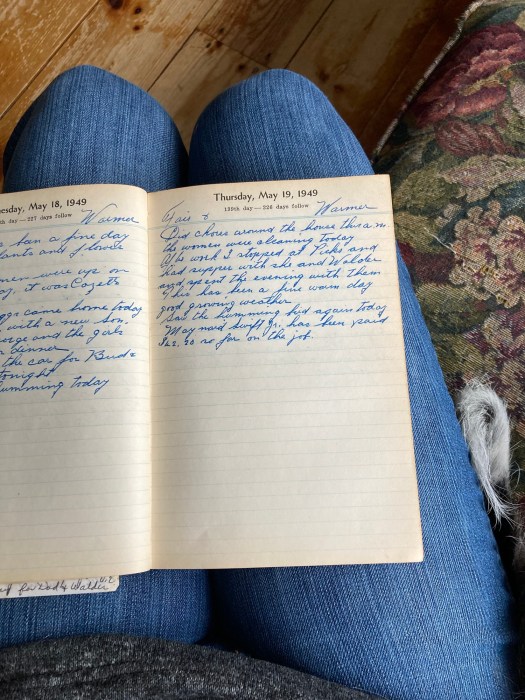 esday, May 18, 1949
th day — 227 days follow
Warmer
has been a fine day
lants and flowe
were up on
it was Cazets
came home today
with a new
orge and the girls
dinner
the car for Bird &
tonight
umming today
Thursday, May 19, 1949
139th day — 226 days follow
Fair & Warmer
Did chores around the house this a m
the women were cleaning today
After work I stopped at and
had supper with she and Walder
and spent the evening with them
This has been a fine warm day
good growing weather
Saw the humming bird again today
Maynard Swift Jr. has been paid
so far on the job.
for Dad & Walder